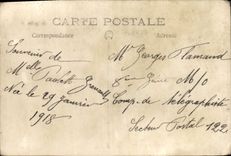 CARTE POSTALE
Correspondance
Adresse
Souvenir de
Melle Paulette
Née le 29 Janvier
1918
Mr Georges Flamand
8ème Génie M/O
Comp. de télégraphiste
Secteur Postal 122